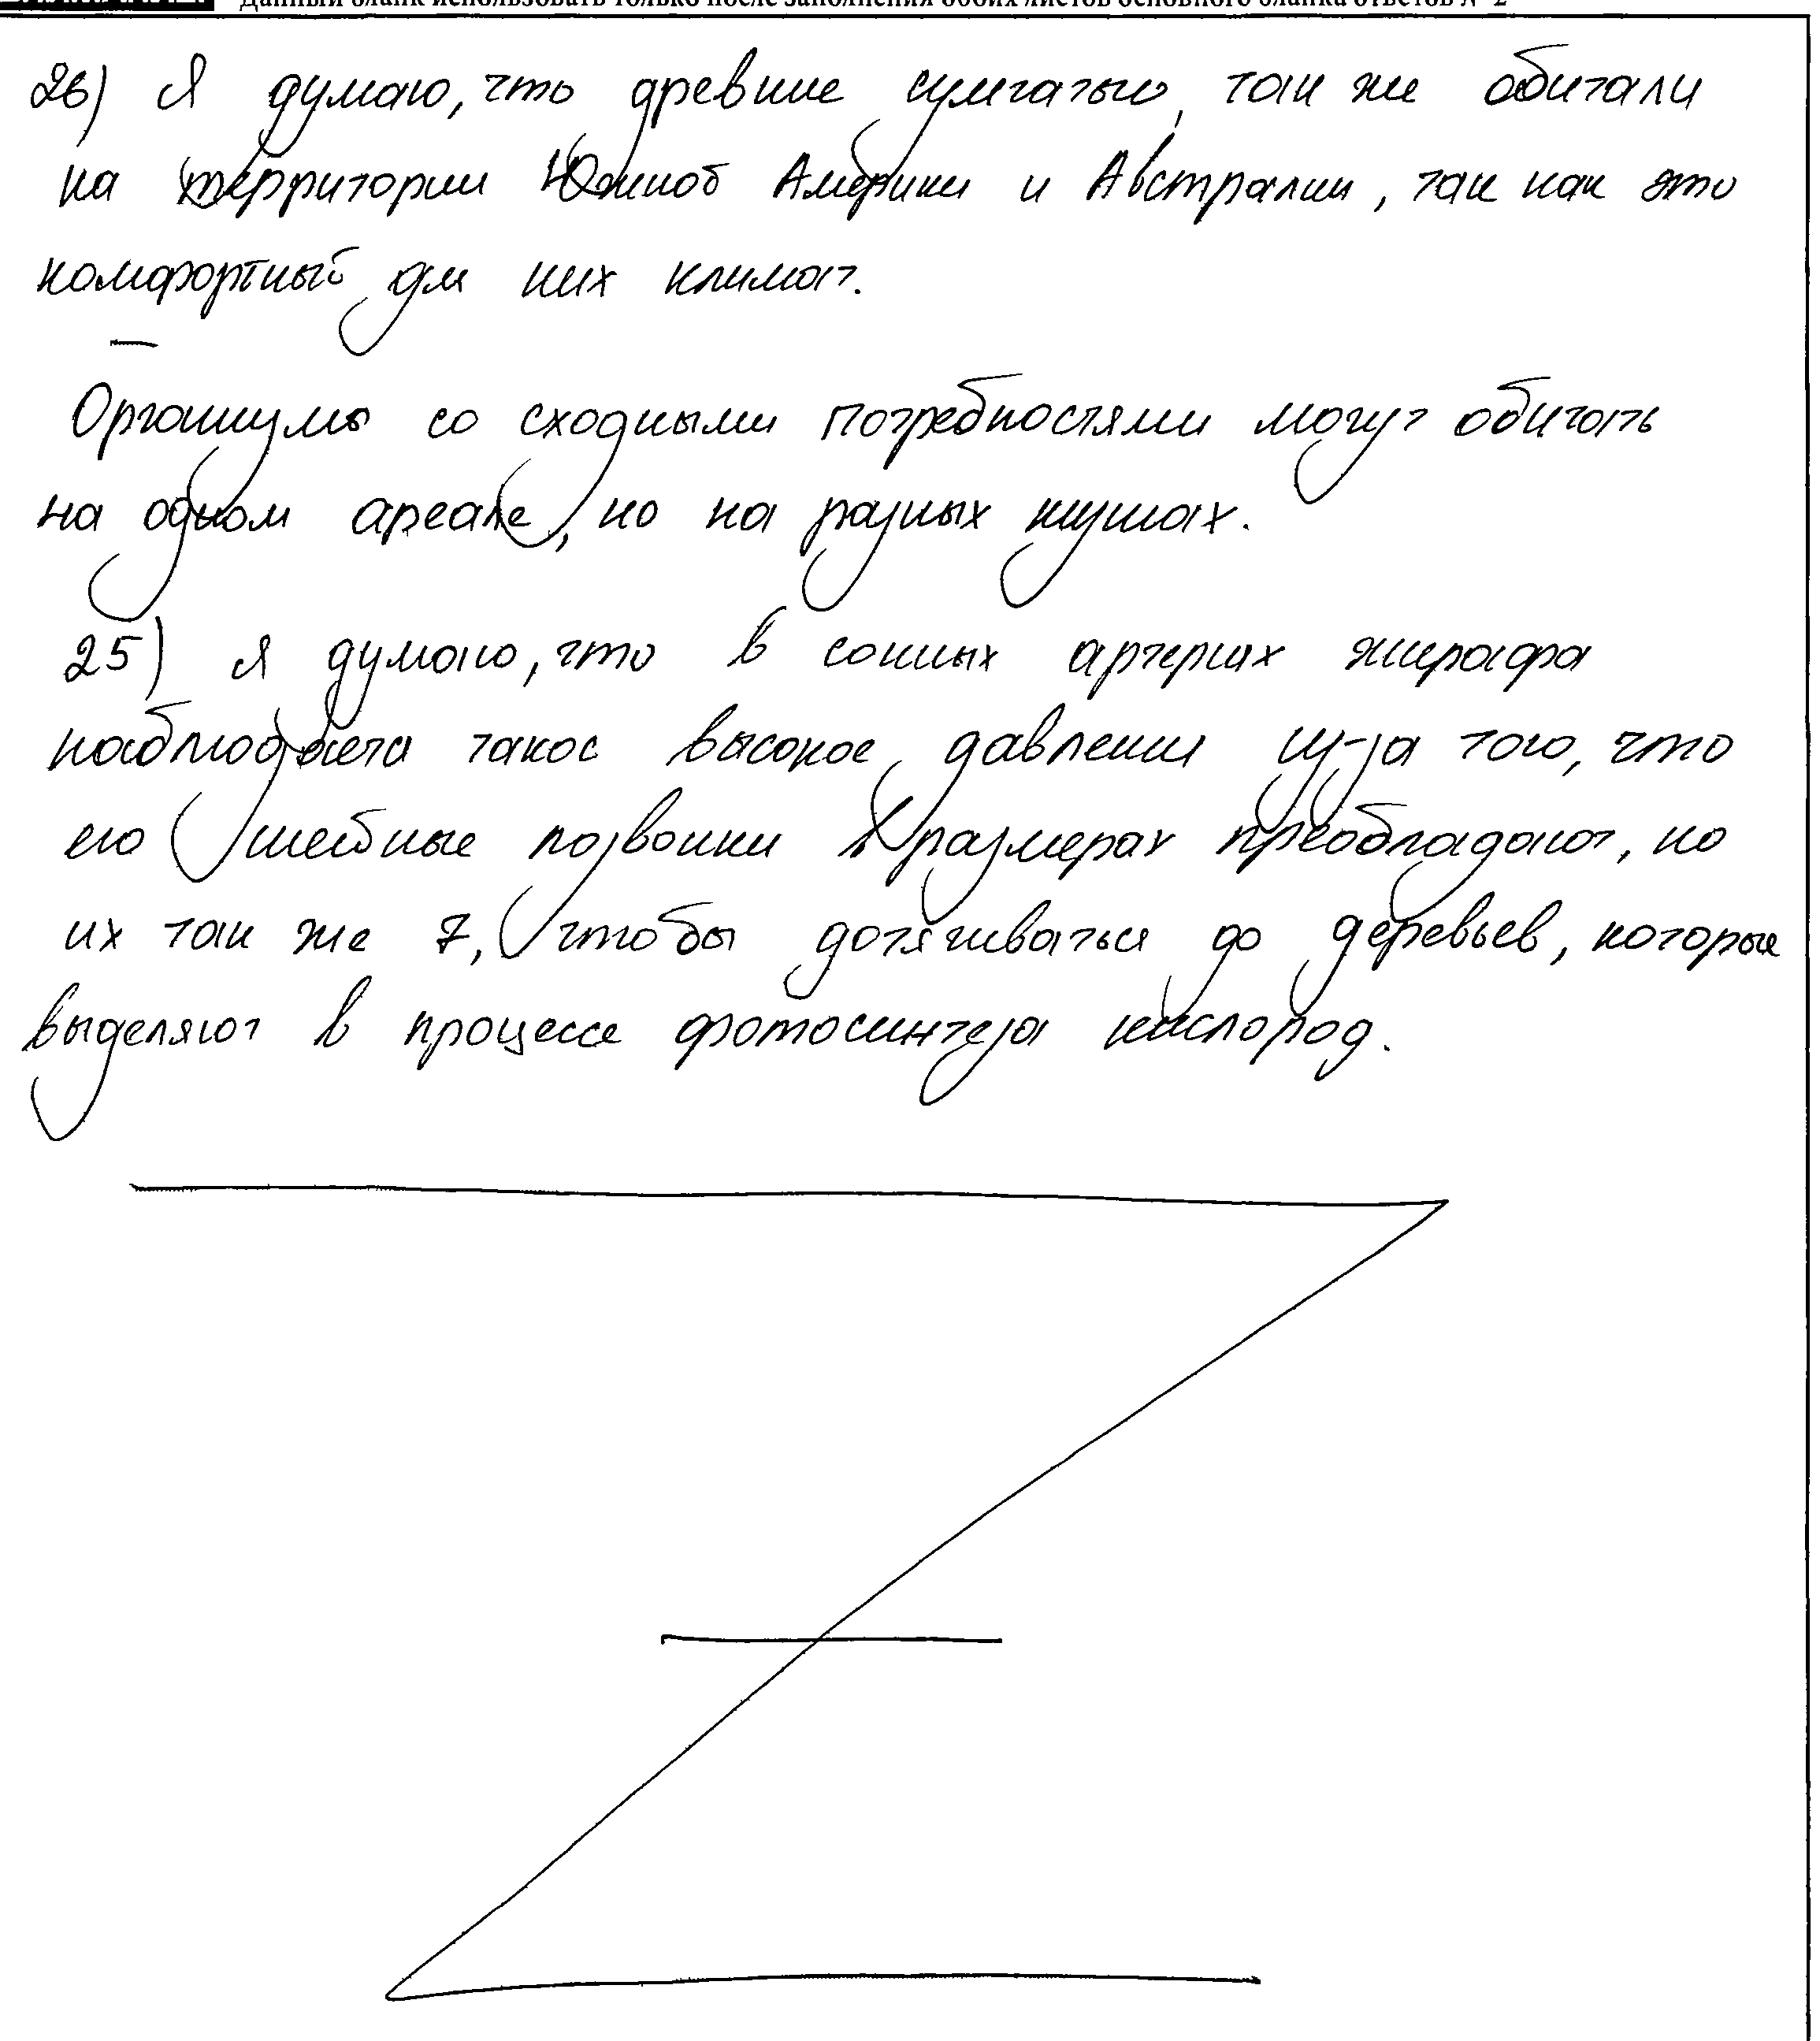 Данный бланк использовать только после заполнения обоих листов основного бланка ответов № 2
26) Я думаю, что древние сумчатые, так же обитали
на территории Южной Америки и Австралии, так как это
комфортный для них климат.
Организмы со сходными потребностями могут обитать
на одном ареале, но на разных нишах.
25) Я думаю, что в сонных артериях жирафа
наблюдается такое высокое давления из-за того, что
его шейные позвонки в размерах преобладают, но
их так же 7, чтобы дотягиваться до деревьев, которые
выделяют в процессе фотосинтеза кислород.